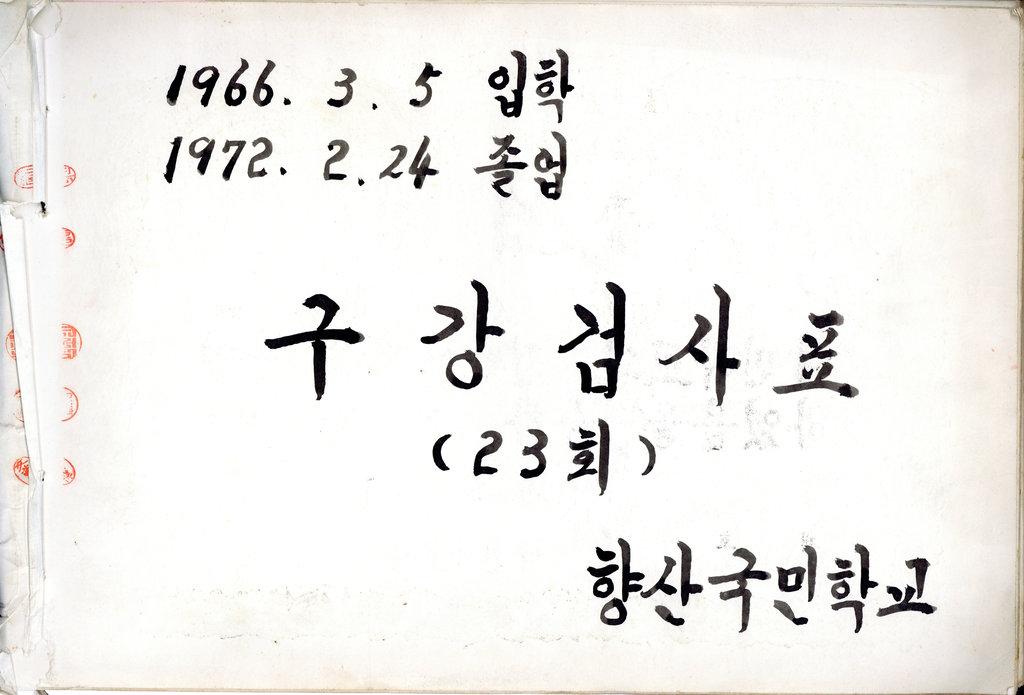 1966. 3. 5 입학
1972. 2. 24 졸업
구강검사표
(23회)
향산국민학교